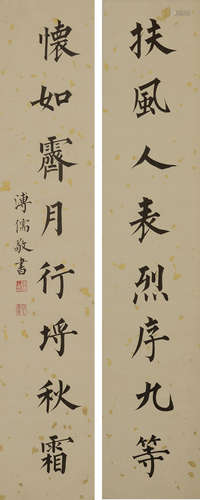 扶風人表烈序九等
懷如霽月行埒秋霜
溥儒敬書